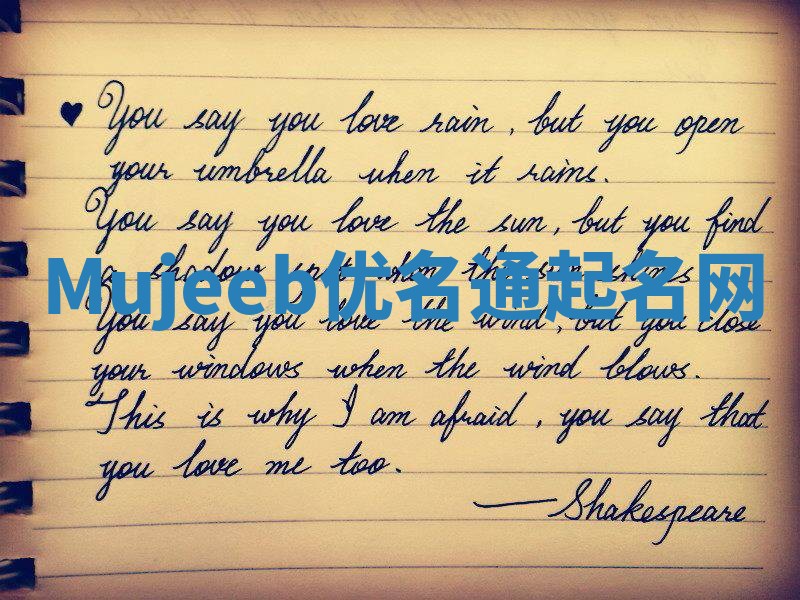 ♥ You say you love rain, but you open
your umbrella when it rains.
You say you love the sun, but you find
a shadow spot when the sun shines
Mujeeb优名通起名网
You say you love the wind, but you close
your windows when the wind blows.
This is why I am afraid, you say that
you love me too.
— Shakespeare